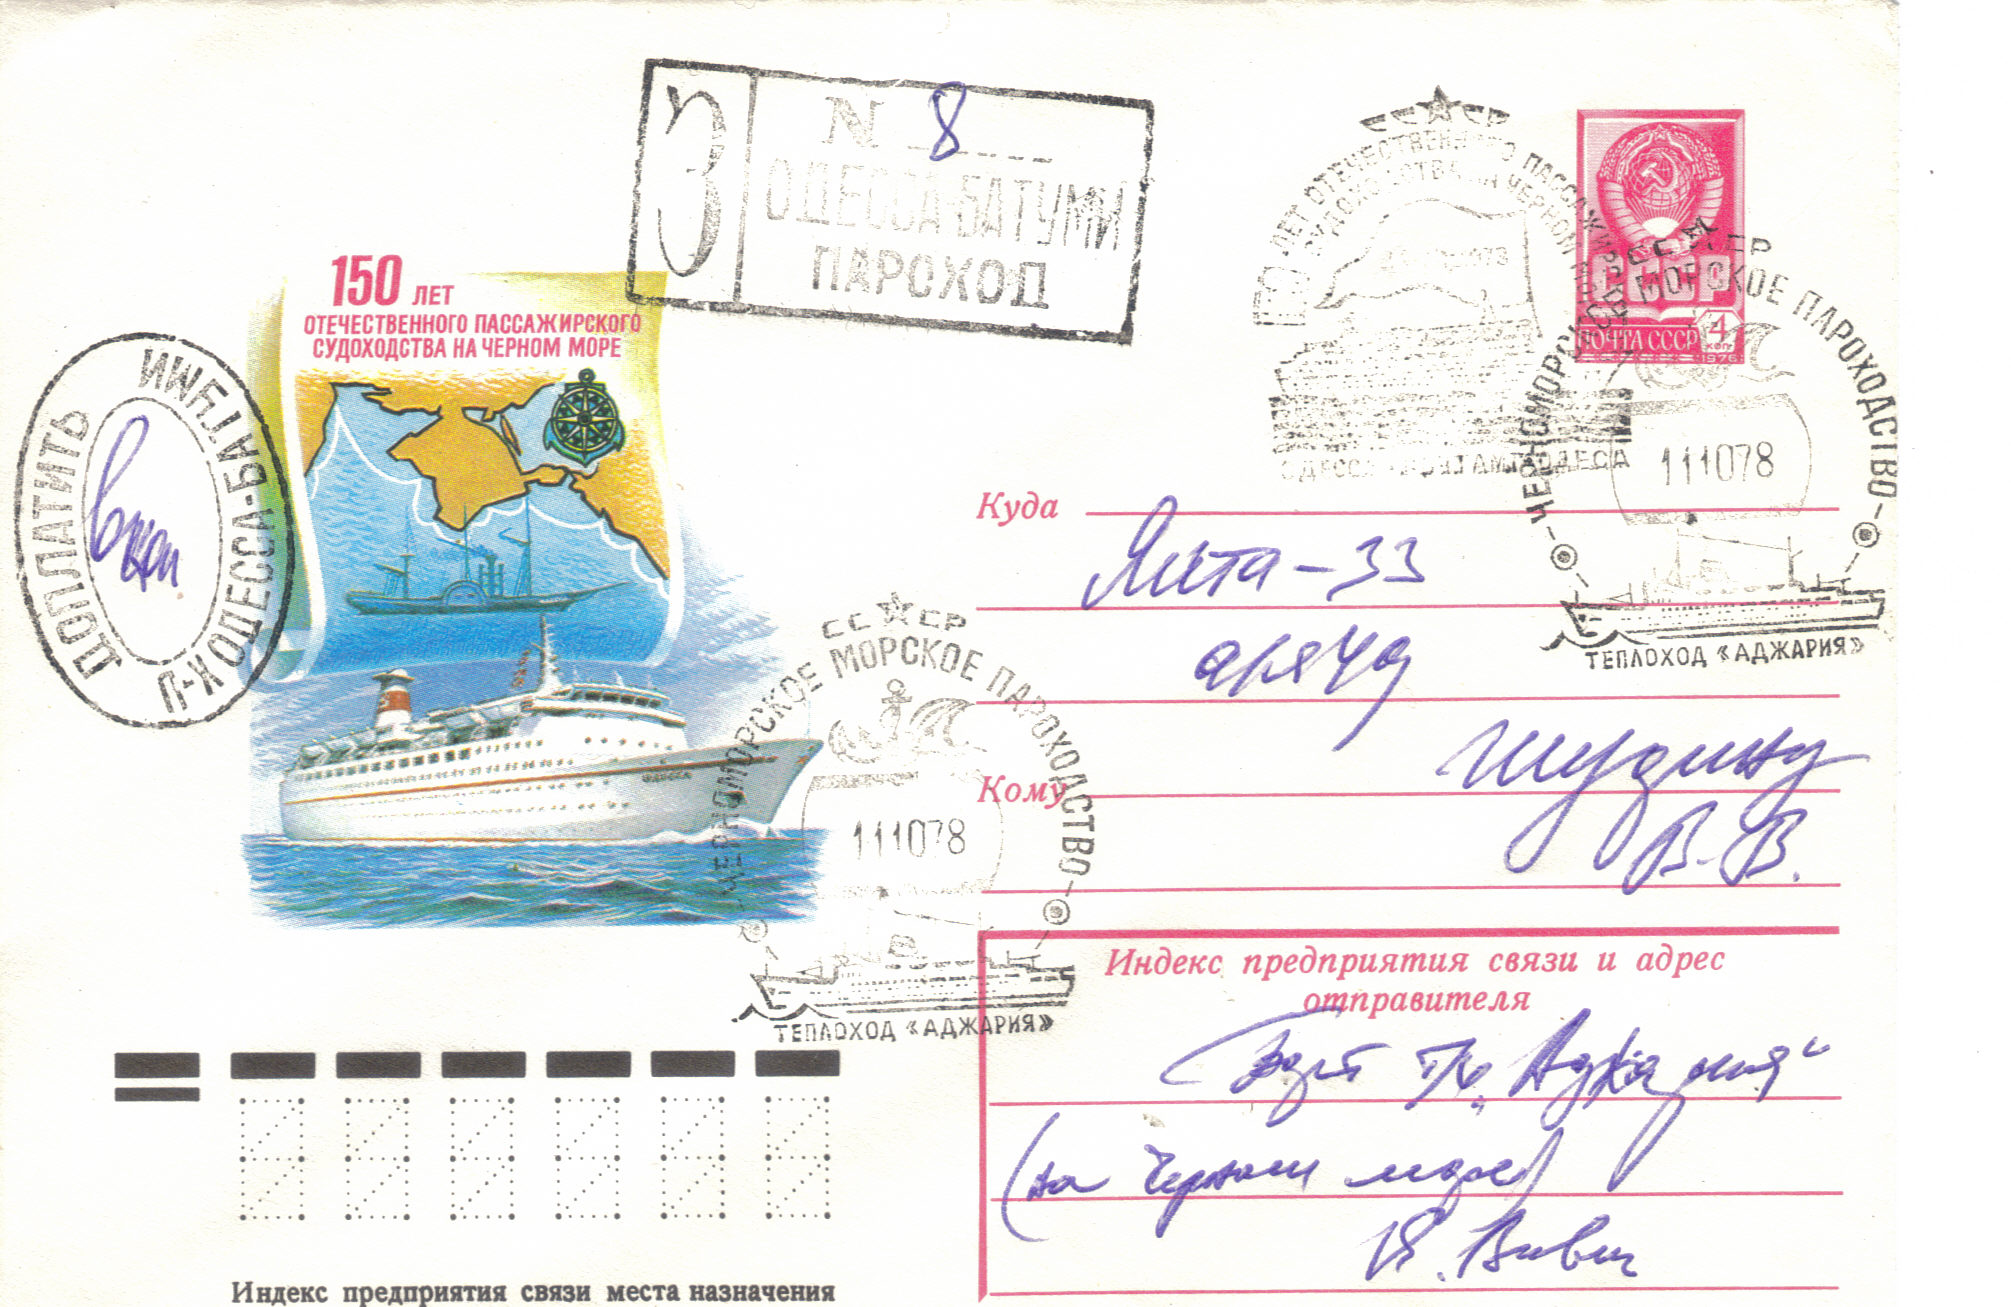 З
N 8
ОДЕССА-БАТУМИ
ПАРОХОД
150 ЛЕТ
ОТЕЧЕСТВЕННОГО ПАССАЖИРСКОГО
СУДОХОДСТВА НА ЧЕРНОМ МОРЕ
ДОПЛАТИТЬ
П-Х ОДЕССА-БАТУМИ
ОДЕССА
СССР
150 ЛЕТ ОТЕЧЕСТВЕННОГО ПАССАЖИРСКОГО
СУДОХОДСТВА НА ЧЕРНОМ МОРЕ
1978
СССР
ПОЧТА СССР
4
КОП
1976
СССР
ЧЕРНОМОРСКОЕ МОРСКОЕ ПАРОХОДСТВО
111078
ТЕПЛОХОД «АДЖАРИЯ»
Куда
Ялта-33
до востр
Кому
Шудину
В.В.
СССР
ЧЕРНОМОРСКОЕ МОРСКОЕ ПАРОХОДСТВО
111078
ТЕПЛОХОД «АДЖАРИЯ»
Индекс предприятия связи и адрес
отправителя
Борт т/х „Аджария"
(на Черном море)
Индекс предприятия связи места назначения